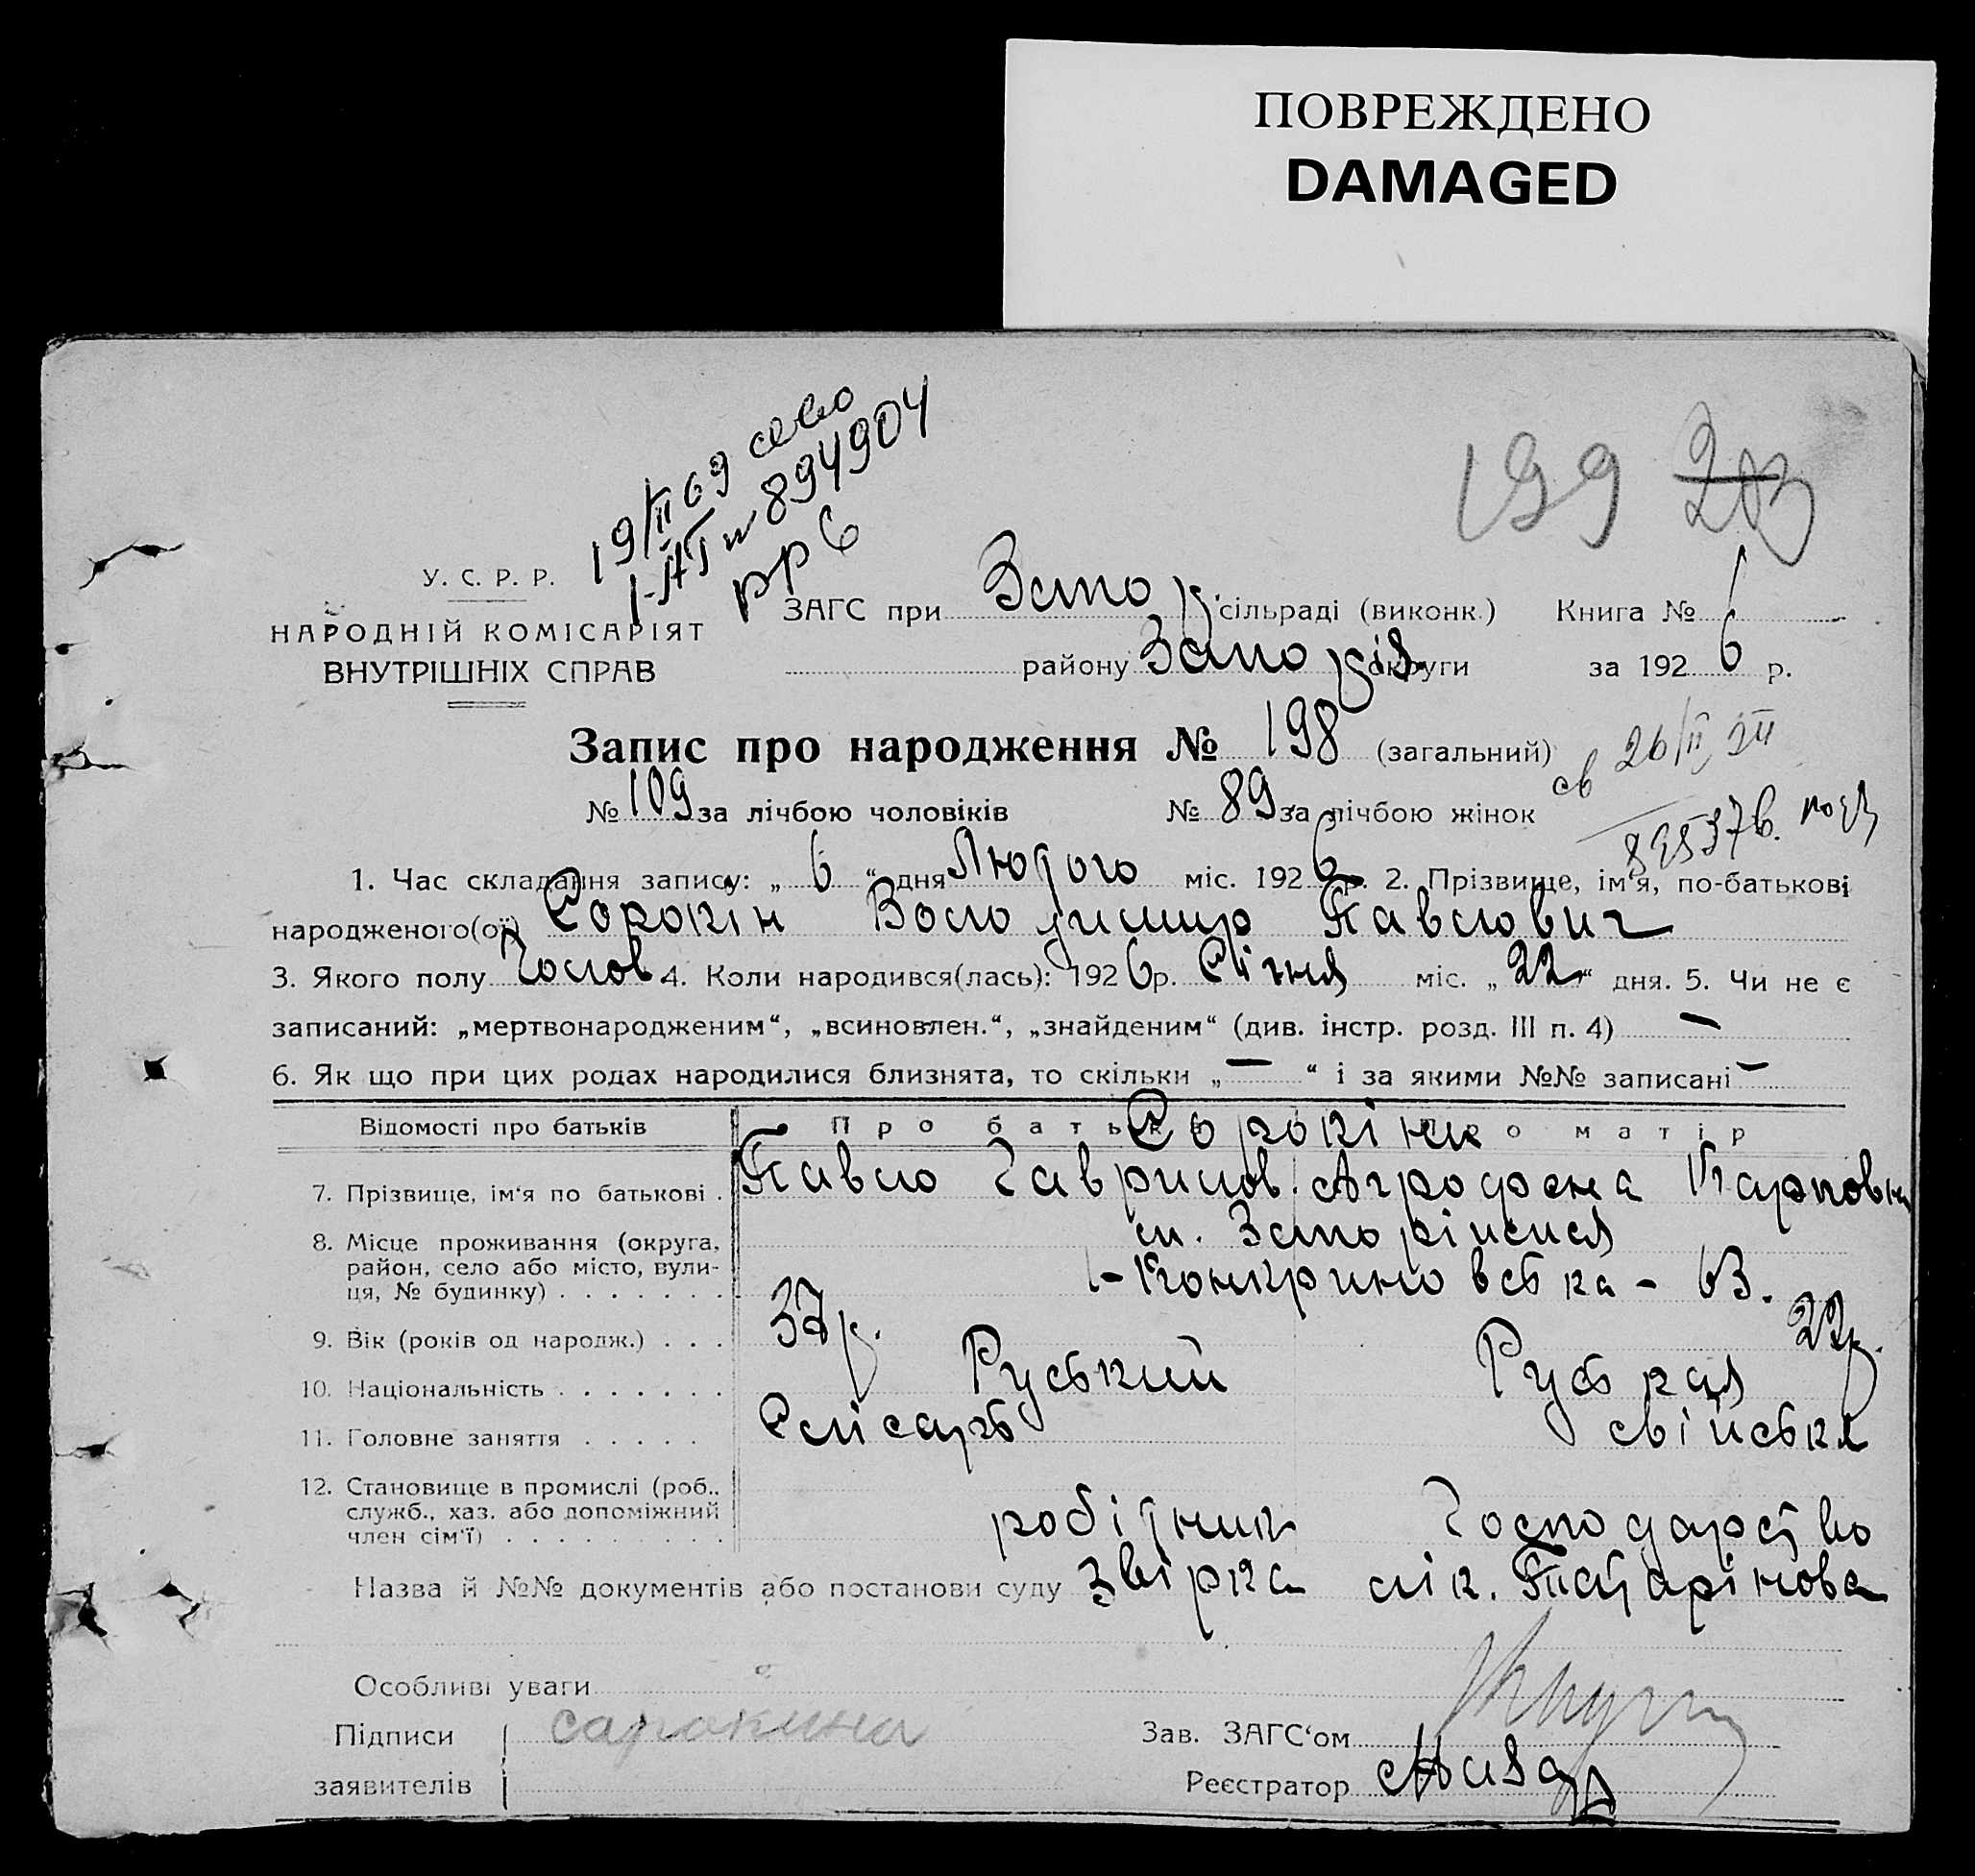 ПОВРЕЖДЕНО
DAMAGED
19/II 69
I-АП № 894904
рр 6
199 203
У. С. Р. Р.
НАРОДНІЙ КОМІСАРІЯТ
ВНУТРІШНІХ СПРАВ
ЗАГС при Запо р. сільраді (виконк.) Книга №
району Запо різ. округи за 1926 р.
Запис про народження № 198 (загальний)
св 26/II
№ 109 за лічбою чоловіків № 89 за лічбою жінок
1. Час складання запису: „ 6 “ дня Лютого міс. 1926 р. 2. Прізвище, ім'я, по-батькові
народженого(ої) Сорокін Володимир Павлович
3. Якого полу Чолов 4. Коли народився(лась): 1926 р. Січня міс. „ 22 “ дня. 5. Чи не є
записаний: „мертвонародженим“, „всиновлен.“, „знайденим“ (див. інстр. розд. III п. 4) —
6. Як що при цих родах народилися близнята, то скільки „ — “ і за якими №№ записані —
Відомості про батьків Про батька Про матір
Сорокіни
7. Прізвище, ім'я по батькові . Павло Гаврилов. Агрофена Карповна
8. Місце проживання (округа, район, село або місто, вулиця, № будинку) . . . . . . . м. Запоріжжя
63.
9. Вік (років од народж.) . . . 37р. 22р.
10. Національність . . . . . . . Руський Руська
11. Головне заняття . . . . . Слісарь свійське
12. Становище в промислі (роб.,
служб., хаз. або допоміжний
член сім'ї) . . . . . . . . . робідник Господарство
Назва й №№ документів або постанови суду звірка лік. Татарінова
Особливі уваги
Підписи сарокина Зав. ЗАГС'ом
заявителів Реєстратор